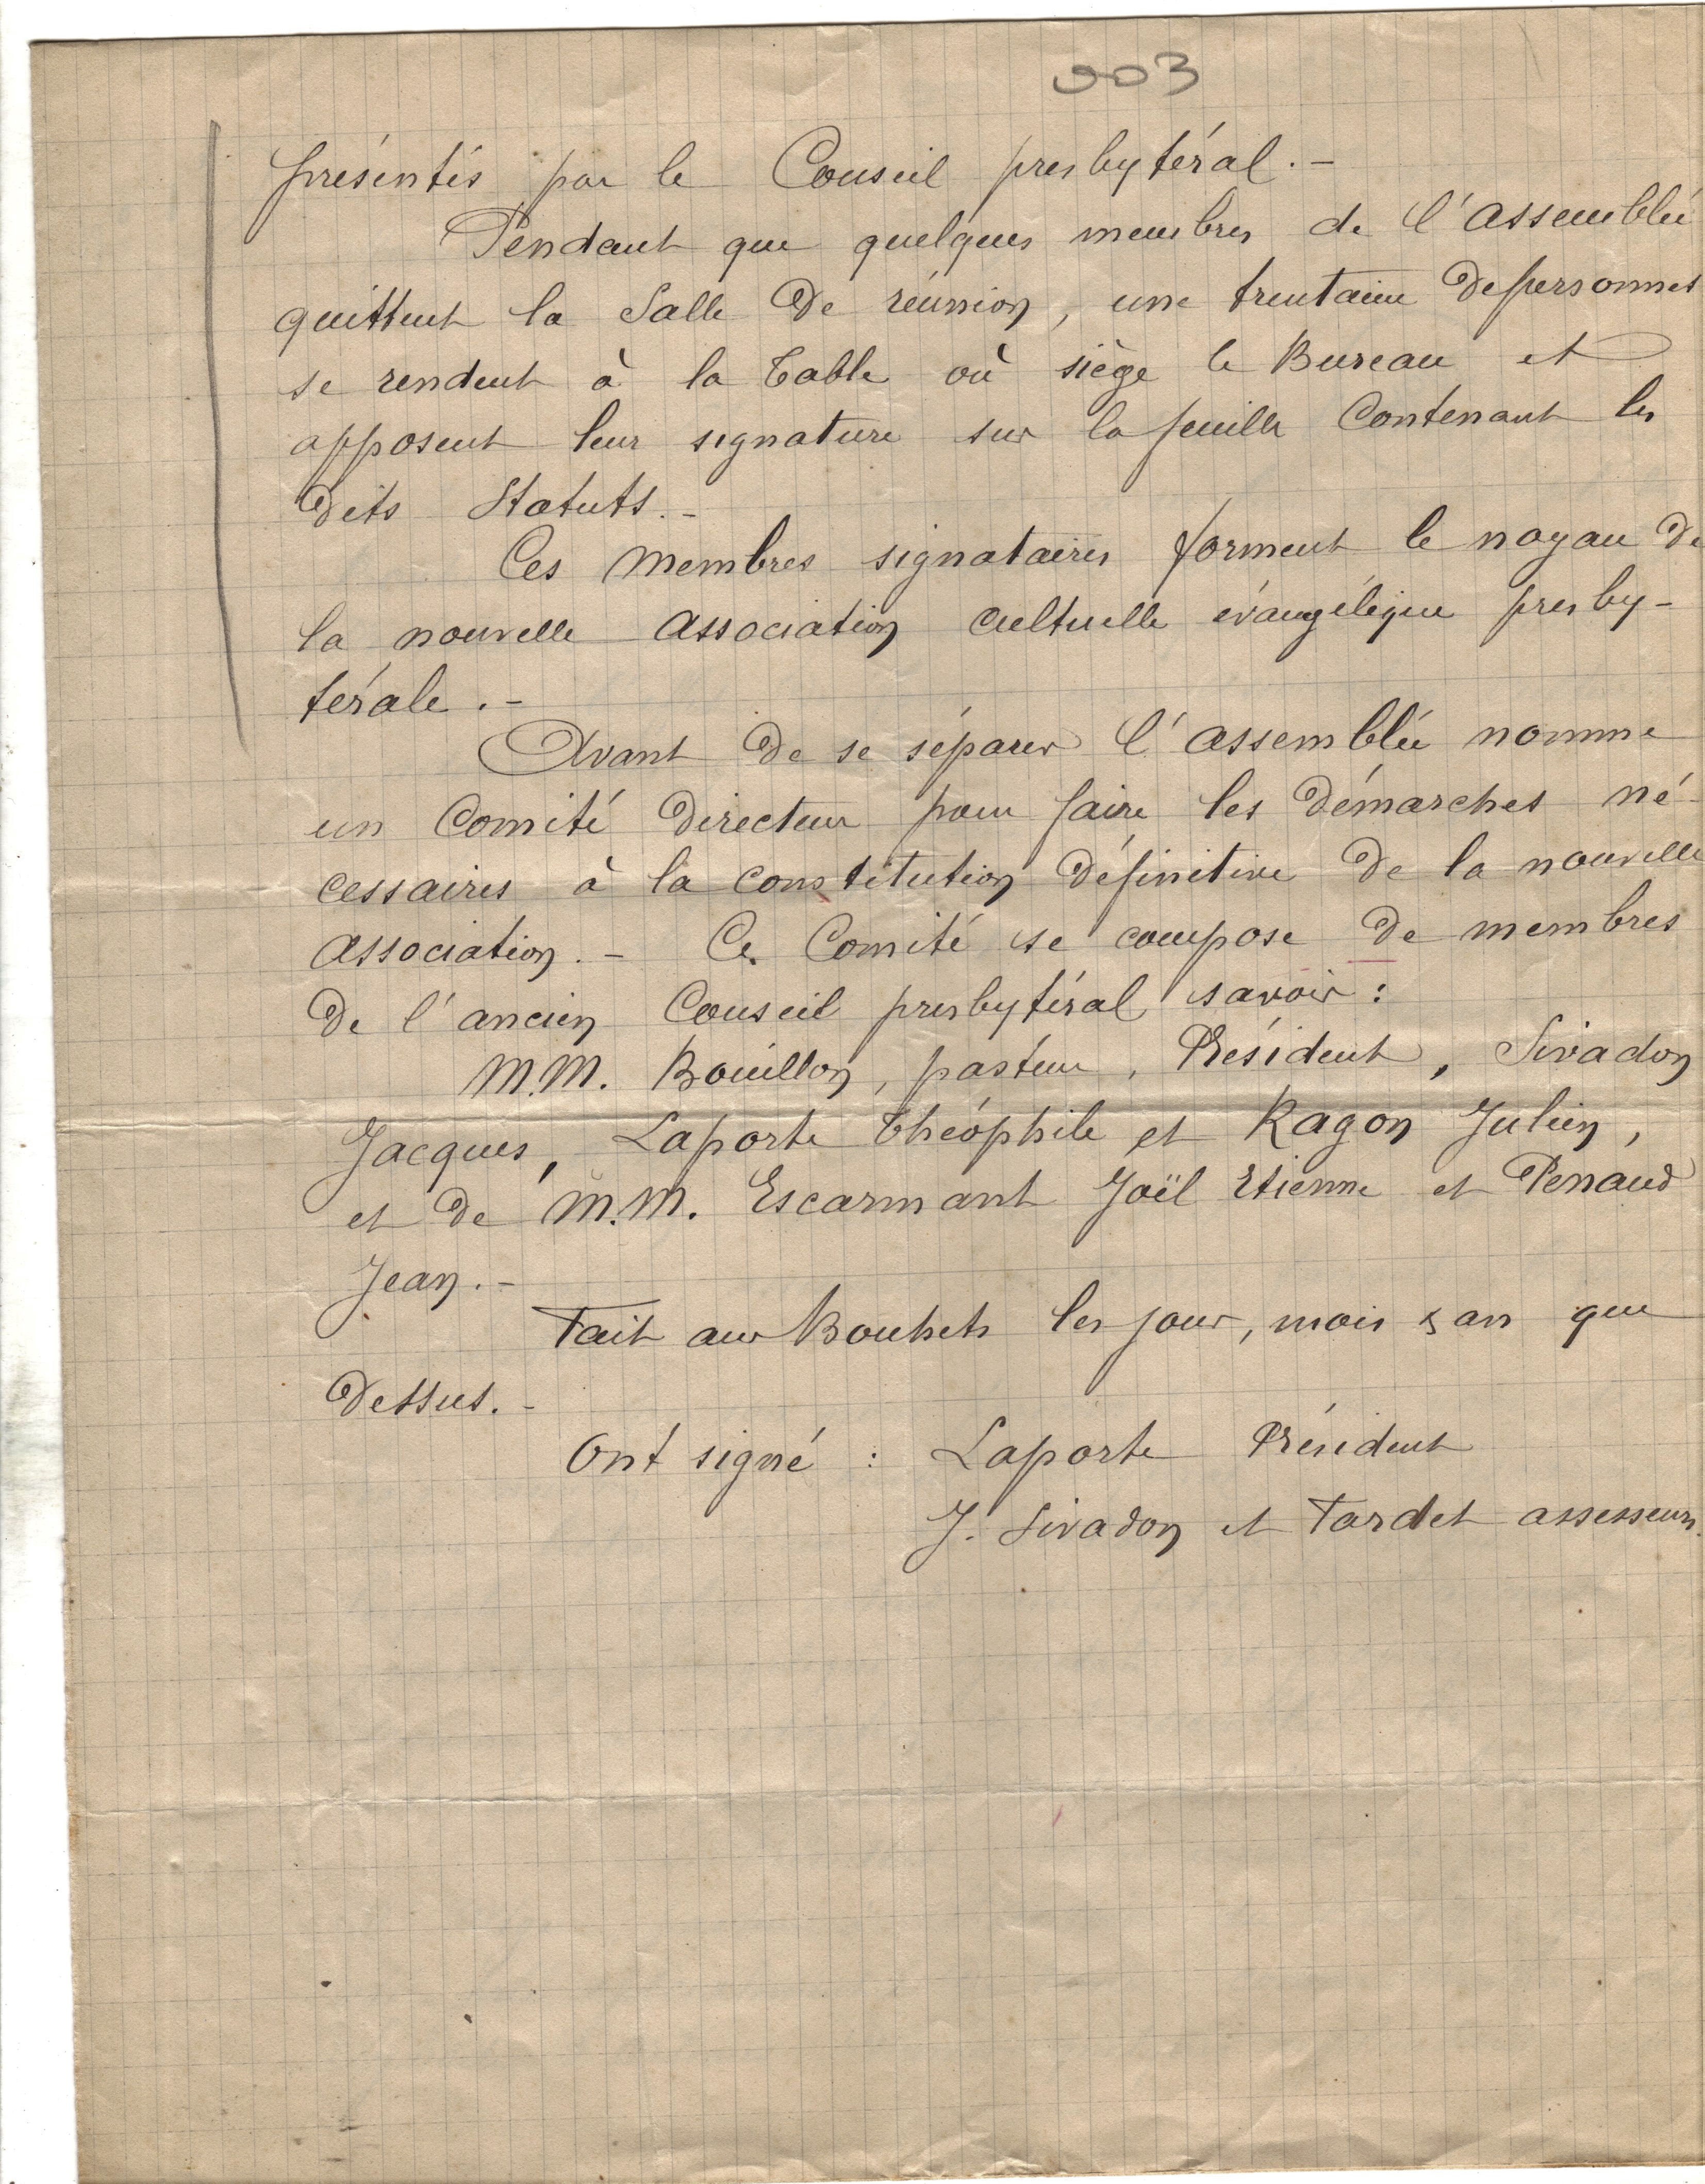 003
présentés par le Conseil presbytéral. -
Pendant que quelques membres de l'assemblée
quittent la salle de réunion, une trentaine de personnes
se rendent à la table où siège le Bureau et
apposent leur signature sur la feuille contenant les
dits Statuts. -
Ces membres signataires forment le noyau de
la nouvelle association cultuelle évangélique presby-
térale. -
Avant de se séparer l'assemblée nomme
un Comité directeur pour faire les démarches né-
cessaires à la constitution définitive de la nouvelle
association. - Ce Comité se compose de membres
de l'ancien Conseil presbytéral savoir :
M.M. Bouillon, pasteur, Président, Sivadon
Jacques, Laporte Théophile et Ragon Julien,
et de M.M. Escarmant Joël Etienne et Penaud
Jean. -
Fait aux les jour, mois & an que
dessus. -
Ont signé : Laporte Président
J. Sivadon et Tardet assesseurs.